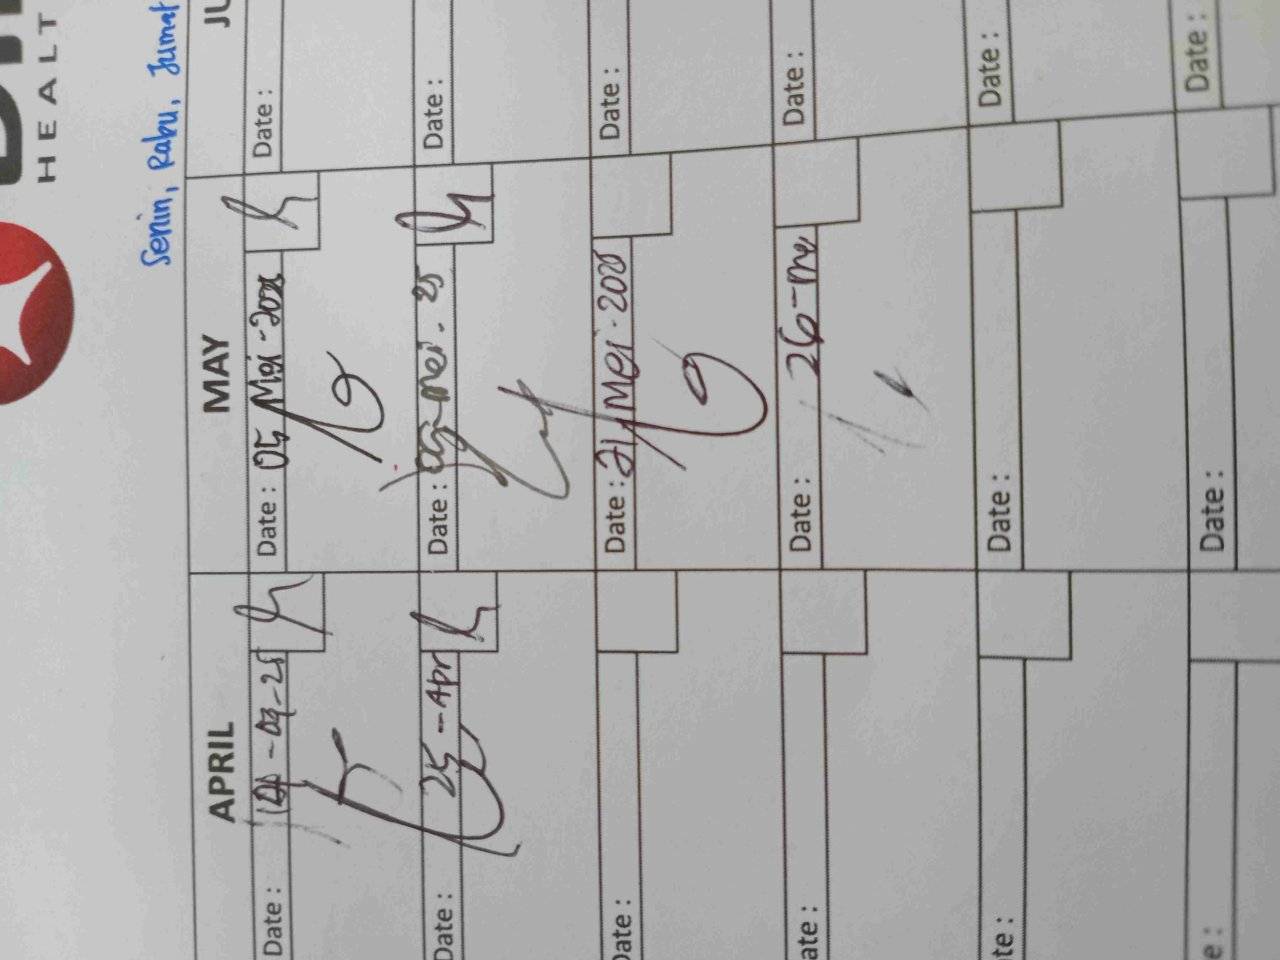 HEALT
Senin, Rabu, Jumat
APRIL MAY JU
Date: Date: 05 Mei - 2025 Date:
Date: 25 - Apr Date: 09 - mei . 25 Date:
Date: Date: 21 Mei . 2025 Date:
ate: Date: 26 - me Date:
te: Date: Date:
e: Date: Date: